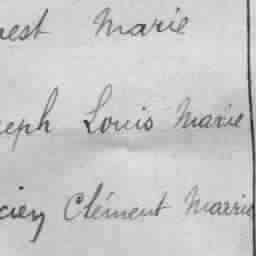 nest Marie
seph Louis Marie
cien Clément Marrie